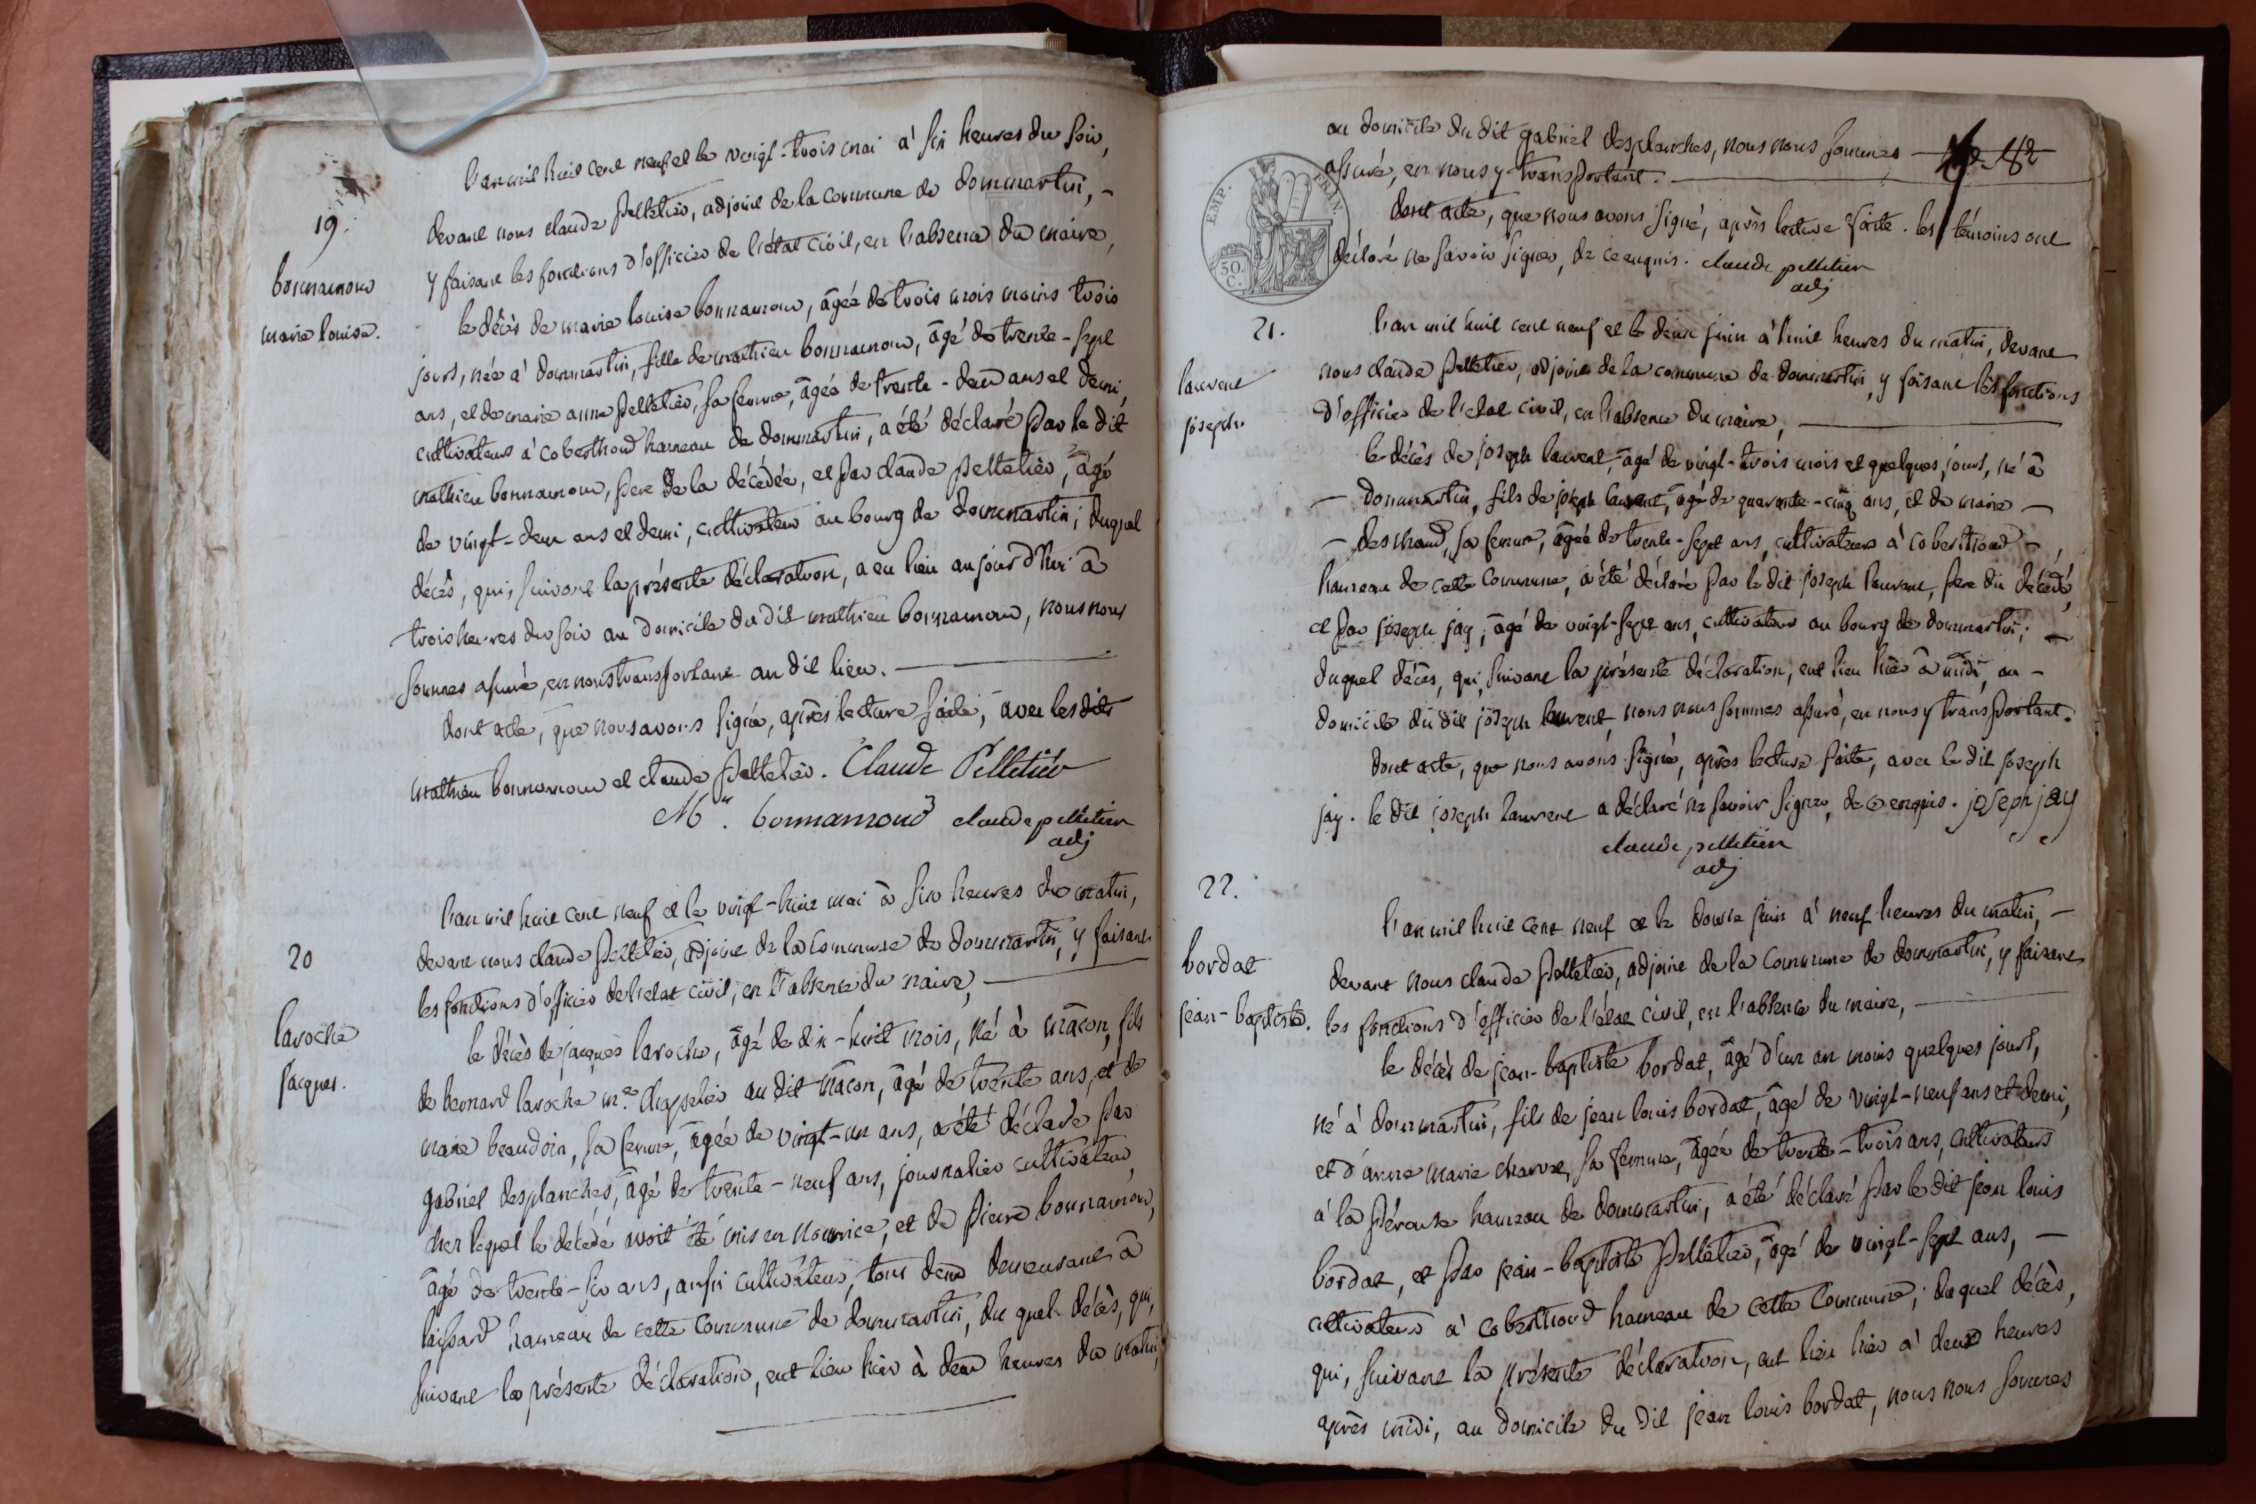 19.
bonnamour
marie louise.
l'an mil huit cent neuf et le vingt-trois mai à six heures du soir,
devant nous claude pelletier, adjoint de la commune de dommartin, -
y faisant les fonctions d'officier de l'état civil, en l'absence du maire,
le décès de marie louise bonnamour, âgée de trois mois moins trois
jours, née à dommartin, fille de mathieu bonnamour, âgé de trente-sept
ans, et de marie anne pelletier, sa femme, âgée de trente-deux ans et demi,
cultivateurs à coberthoud hameau de dommartin, a été déclaré par le dit
mathieu bonnamour, pere de la décédée, et par claude pelletier, âgé
de vingt-deux ans et demi, cultivateur au bourg de dommartin; duquel
décès, qui, suivant la présente déclaration, a eu lieu aujourd'hui à
trois heures du soir au domicile du dit mathieu bonnamour, nous nous
sommes assuré, en nous transportant au dit lieu.
dont acte, que nous avons signé, après lecture faite, avec les dits
mathieu bonnamour et claude pelletier. Claude Pelletier
Mu. bonnamour claude pelletier
adj
20
laroche
jacques.
l'an mil huit cent neuf et le vingt-huit mai à six heures du matin,
devant nous claude pelletier, adjoint de la commune de dommartin, y faisant
les fonctions d'officier de l'état civil, en l'absence du maire,
le décès de jacques laroche, âgé de dix-huit mois, né à mâcon, fils
de bernard laroche m.e chapelier au dit mâcon, âgé de trente ans, et de
marie beaudoin, sa femme, âgée de vingt-un ans, a été déclaré par
gabriel desplanches, âgé de trente-neuf ans, journalier cultivateur
chez lequel le décédé avoit été mis en nourrice, et de pierre bonnamour,
âgé de trente-six ans, aussi cultivateur, tous deux demeurant à
hameau de cette commune de dommartin, du quel décès, qui,
suivant la présente déclaration, eut lieu hier à deux heures du matin,
au domicile du dit gabriel desplanches, nous nous sommes
assuré, en nous y transportant.
EMP. FRAN.
50.
C.
dont acte, que nous avons signé, après lecture faite. les témoins ont
déclaré ne savoir signer, de ce enquis. claude pelletier
adj
21.
laurent
joseph.
l'an mil huit cent neuf et le deux juin à huit heures du matin, devant
nous claude pelletier, adjoint de la commune de dommartin, y faisant les fonctions
d'officier de l'état civil, en l'absence du maire,
le décès de joseph laurent, âgé de vingt-trois mois et quelques jours, né à
- dommartin, fils de joseph laurent, âgé de quarante-cinq ans, et de marie -
- deschaud, sa femme, âgée de trente-sept ans, cultivateurs à coberthoud -
hameau de cette commune, a été déclaré par le dit joseph laurent, pere du décédé,
et par joseph jay, âgé de vingt-sept ans, cultivateur au bourg de dommartin; -
duquel décès, qui, suivant la présente déclaration, eut lieu hier à midi, au -
domicile du dit joseph laurent, nous nous sommes assuré, en nous y transportant.
dont acte, que nous avons signé, après lecture faite, avec le dit joseph
jay. le dit joseph laurent a déclaré ne savoir signer, de ce enquis. joseph jay
claude pelletier
adj
22.
bordat
jean-baptiste.
l'an mil huit cent neuf et le douze juin à neuf heures du matin, -
devant nous claude pelletier, adjoint de la commune de dommartin, y faisant
les fonctions d'officier de l'état civil, en l'absence du maire,
le décès de jean-baptiste bordat, âgé d'un an moins quelques jours,
né à dommartin, fils de jean louis bordat, âgé de vingt-neuf ans et demi,
et d'anne marie, sa femme, âgée de trente-trois ans, cultivateurs
à la hameau de dommartin, a été déclaré par le dit jean louis
bordat, et par jean-baptiste pelletier, âgé de vingt-sept ans, -
cultivateurs à coberthoud hameau de cette commune; duquel décès,
qui, suivant la présente déclaration, eut lieu hier à deux heures
après midi, au domicile du dit jean louis bordat, nous nous sommes